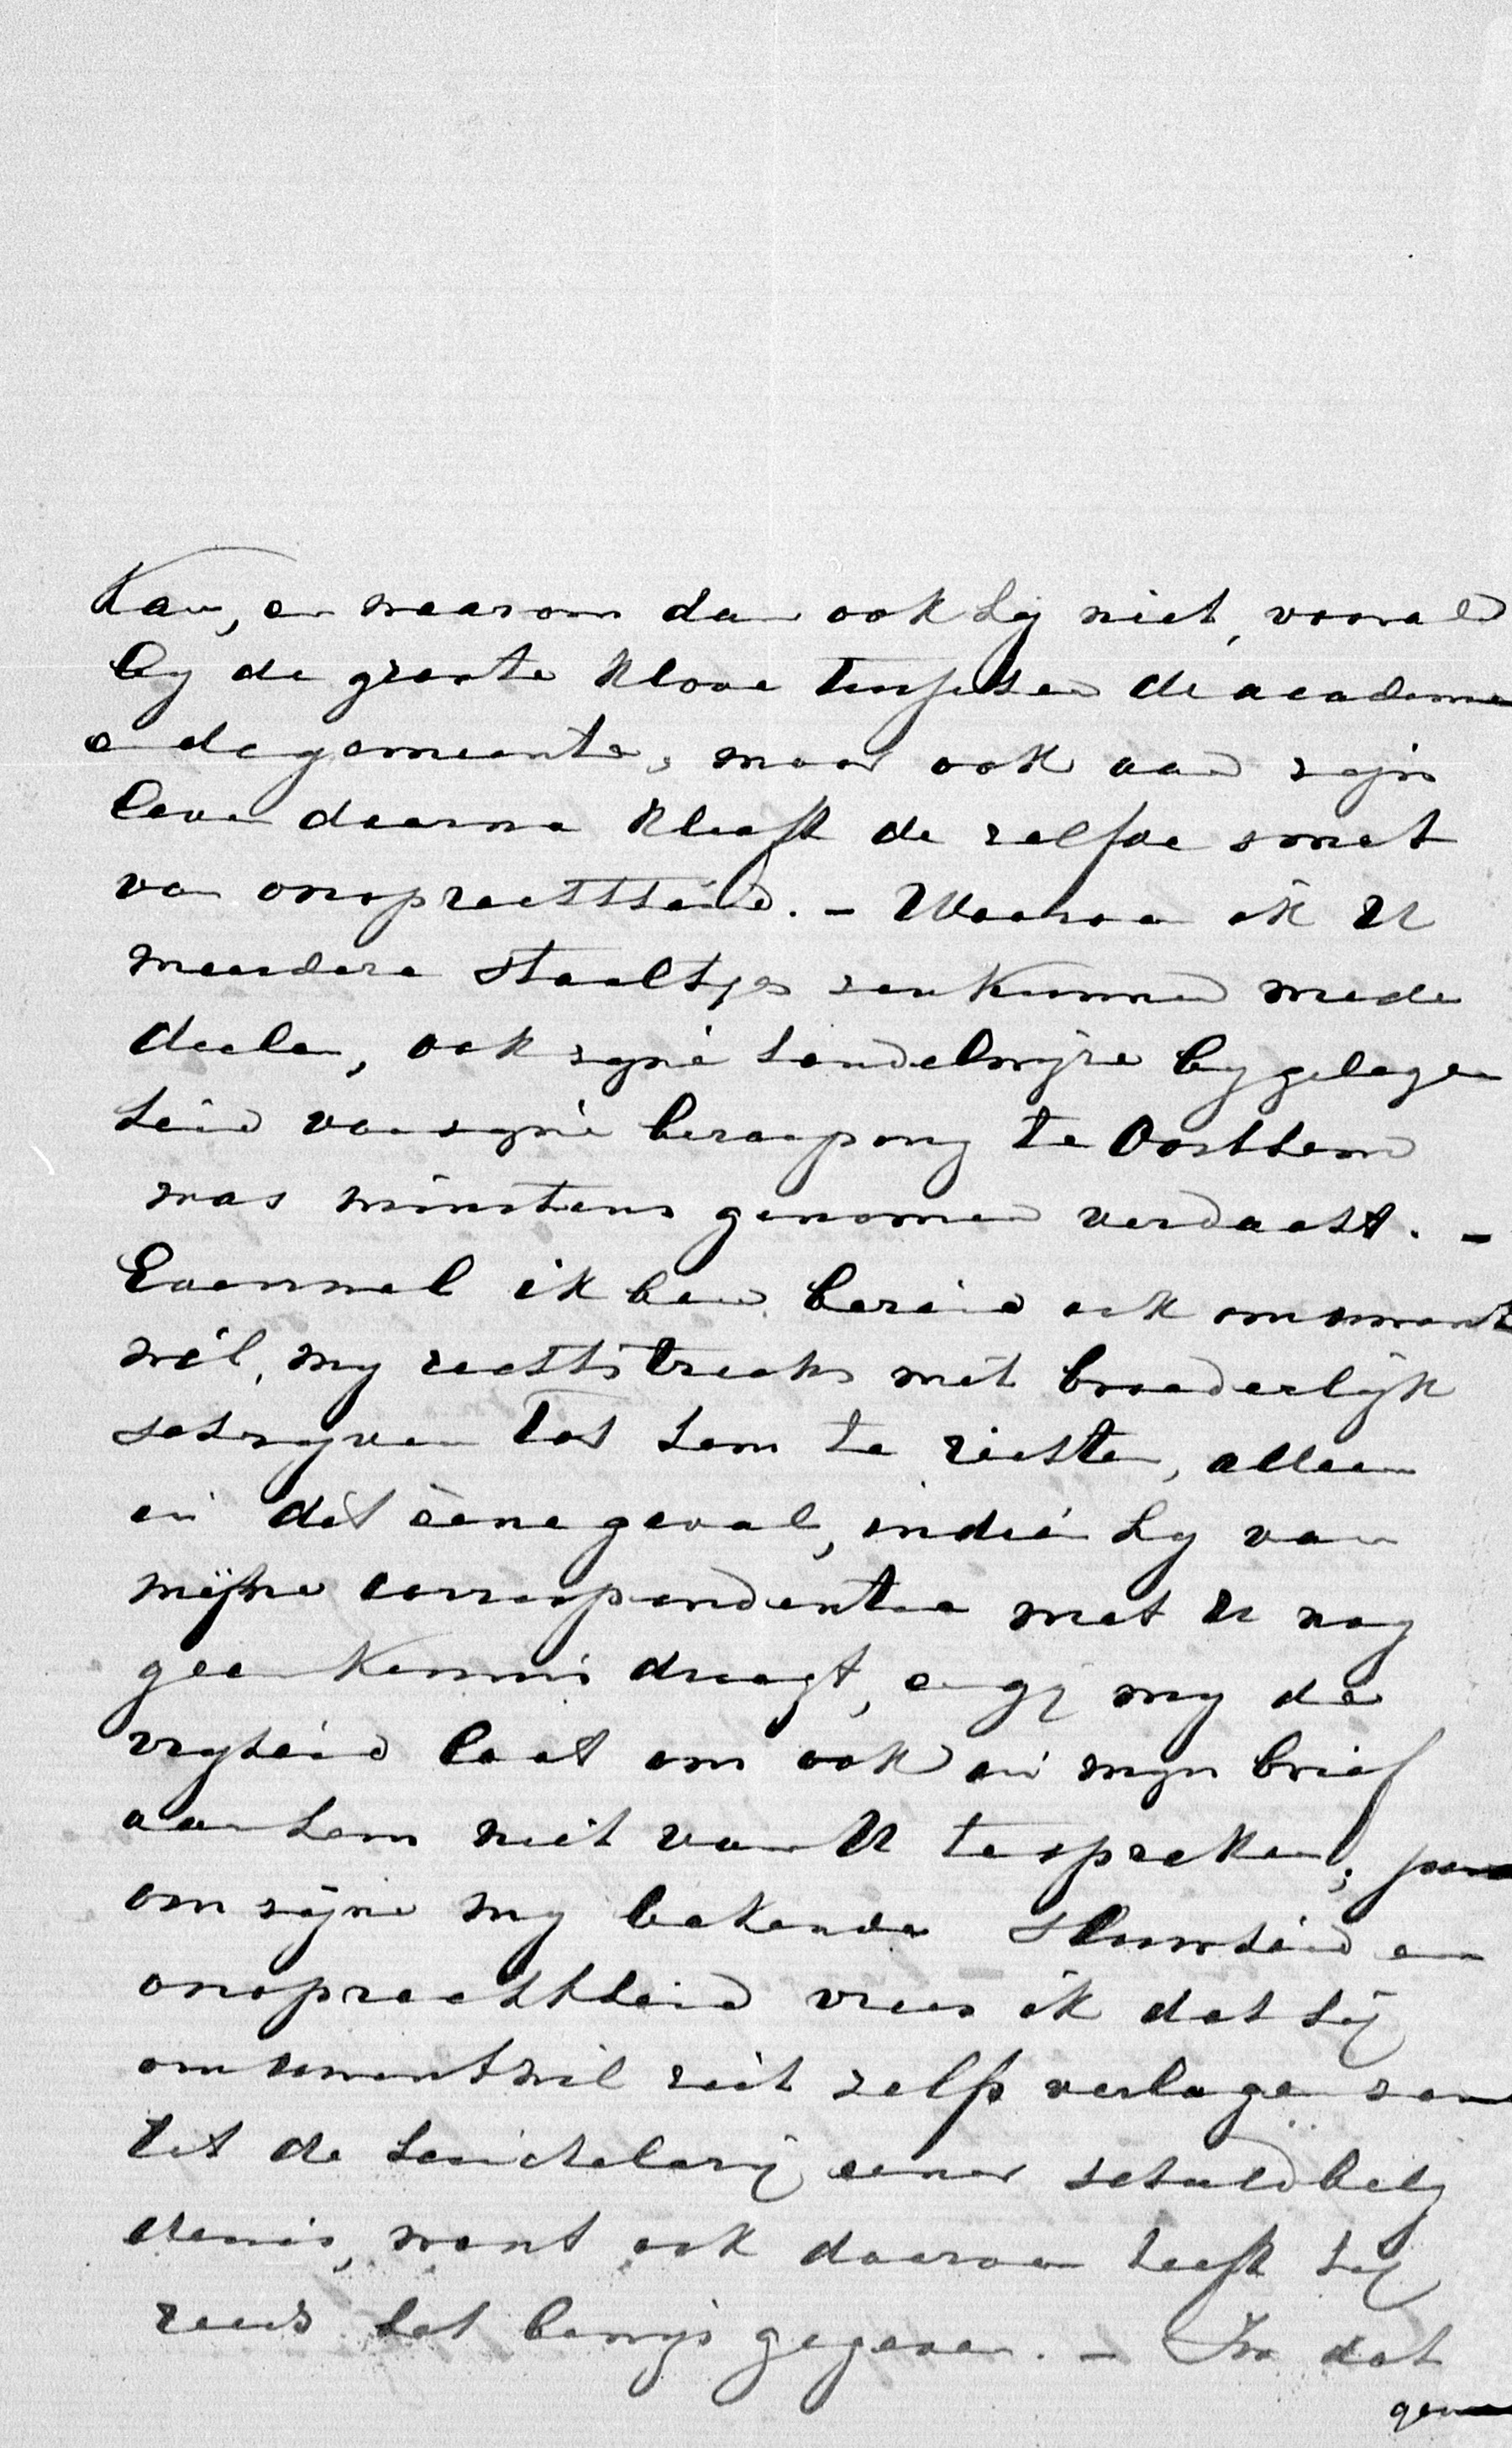 Kan, en waarom dan ook hij niet, vooral
by de groote kloove tusschen de academie
en de gemeente, maar ook aan zijn
leven daarna kleeft de zelfde smet
van onoprechtheid. – Waarvan ik U
meerdere staaltjes zou kunnen mede
deelen, ook zyne handelwijze by gelegen
heid van zyne beroeping te Oosthem
was minstens genomen verdacht. –
Evenwel ik ben bereid ook om uwent
wil, my rechtstreeks met broederlijk
schryven tot hem te richten, alleen
in dit ééne geval, indien hy van
mijne correspondentie met U nog
geen kennis draagt, en gy my de
vryheid laat om ook in mijn brief
aan hem niet van U te spreken;
om zijne my bekende sluwheid en
onoprechtheid vrees ik dat hij
om uwentwil zich zelfs verlagen zou
tot de huichelarij eener schuldbelij
denis, want ook daarvan heeft hij
reeds het bewijs gegeven. – In dat